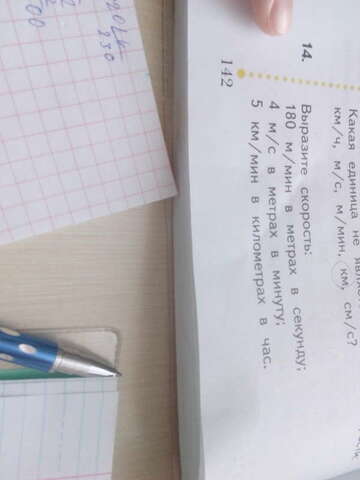 Какая единица не
км/ч, м/с, м/мин, км, см/с?
14. Выразите скорость:
180 м/мин в метрах в секунду;
4 м/с в метрах в минуту;
5 км/мин в километрах в час.
142